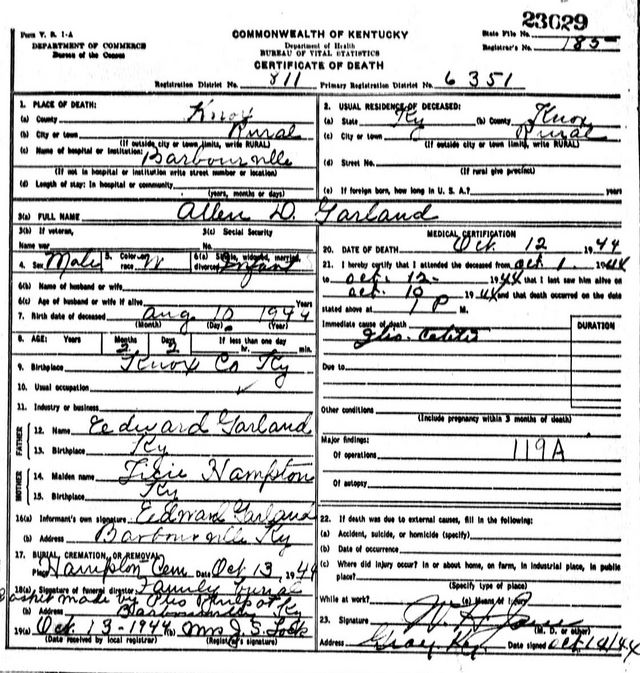 23029
Form V. S. 1-A
DEPARTMENT OF COMMERCE
Bureau of the Census
COMMONWEALTH OF KENTUCKY
Department of Health
BUREAU OF VITAL STATISTICS
CERTIFICATE OF DEATH
State File No.
Registrar's No. 185
Registration District No. 811 Primary Registration District No. 6351
1. PLACE OF DEATH:
(a) County Knox
(b) City or town Rural
(If outside city or town limits, write RURAL)
(c) Name of hospital or institution: Barbourville
(If not in hospital or institution write street number or location)
(d) Length of stay: In hospital or community
(years, months or days)
2. USUAL RESIDENCE OF DECEASED:
(a) State Ky (b) County Knox
(c) City or town Rural
(If outside city or town limits, write RURAL)
(d) Street No.
(If rural give precinct)
(e) If foreign born, how long in U. S. A.? years
3(a) FULL NAME Allen D. Garland
3(b) If veteran, 3(c) Social Security
Name war No.
4. Sex Male 5. Color or race W 6(a) Single, widowed, married, divorced Infant
6(b) Name of husband or wife
6(c) Age of husband or wife if alive Years
7. Birth date of deceased Aug 10 1944
(Month) (Day) (Year)
8. AGE: Years Months Days If less than one day
2 2 hr. min.
9. Birthplace Knox Co Ky
10. Usual occupation
11. Industry or business
FATHER
12. Name Eedward Garland
13. Birthplace Ky
MOTHER
14. Maiden name Hampton
15. Birthplace Ky
16(a) Informant's own signature Eedward Garland
(b) Address Barbourville Ky
17. BURIAL, CREMATION, OR REMOVAL
Place Hampton Cem Date Oct 13, 1944
18(a) Signature of funeral director Family
made by
(b) Address Barbourville Ky
19(a) Oct. 13-1944 (b) Mrs J. S. Lock
(Date received by local registrar) (Registrar's signature)
MEDICAL CERTIFICATION
20. DATE OF DEATH Oct 12 1944
21. I hereby certify that I attended the deceased from Oct 1, 1944
to Oct. 12- 1944 that I last saw him alive on
Oct. 10 1944 and that death occurred on the date
stated above at 1 P M.
Immediate cause of death
DURATION
Due to
Other conditions
(Include pregnancy within 3 months of death)
Major findings:
Of operations 119A
Of autopsy
22. If death was due to external causes, fill in the following:
(a) Accident, suicide, or homicide (specify)
(b) Date of occurrence
(c) Where did injury occur? In or about home, on farm, in industrial place, in public
place?
(Specify type of place)
While at work? (e) Means of injury
23. Signature
(M. D. or other)
Address Gray Ky. Date signed Oct 14/44